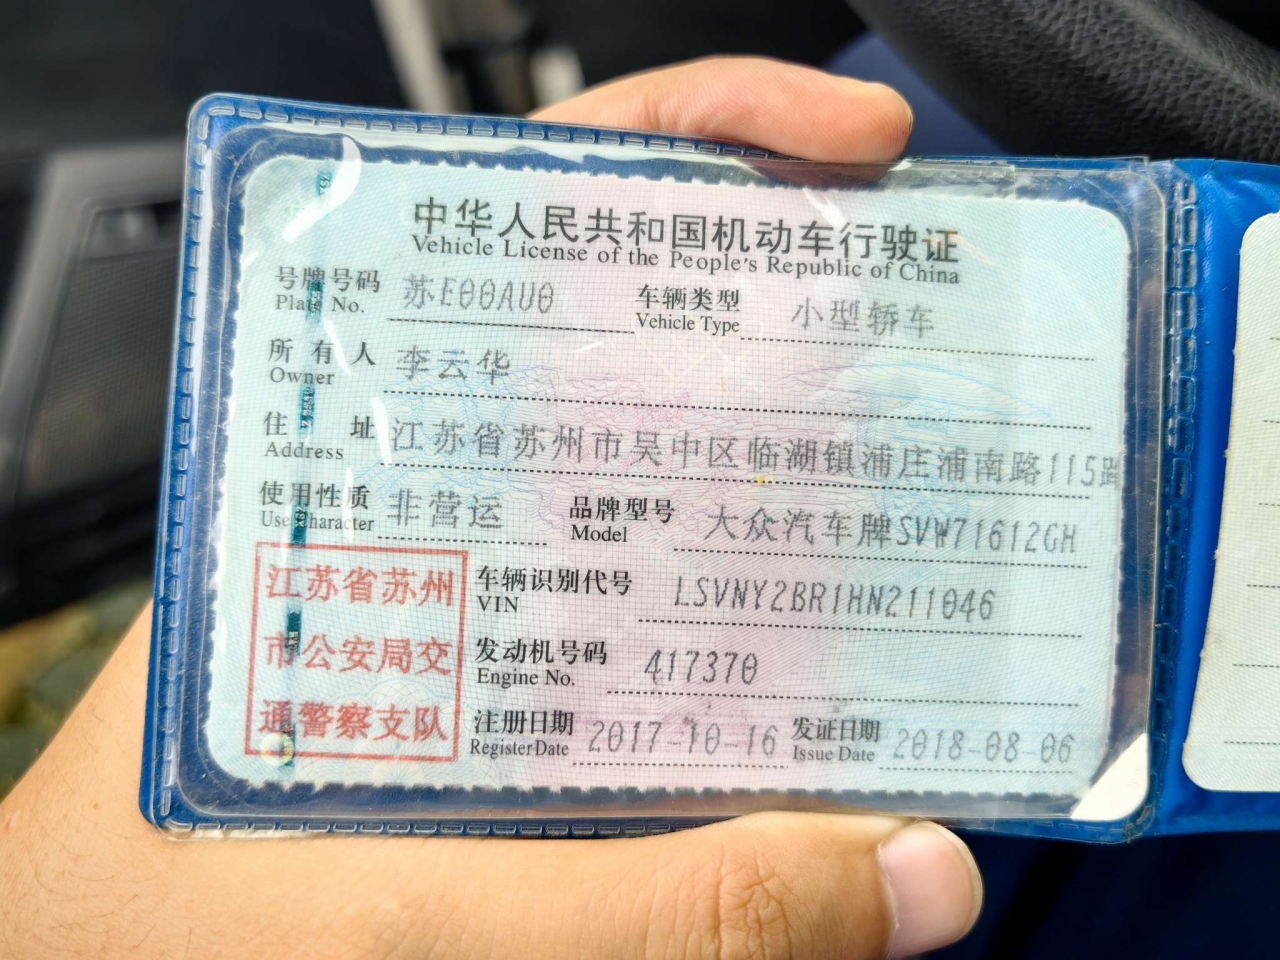 中华人民共和国机动车行驶证
Vehicle License of the People's Republic of China
号牌号码 苏E00AU0 车辆类型 小型轿车
Plate No. Vehicle Type
所有人 李云华
Owner
住址 江苏省苏州市吴中区临湖镇浦庄浦南路115
Address
使用性质 非营运 品牌型号 大众汽车牌SVW71612GH
Use Character Model
江苏省苏州 车辆识别代号 LSVNY2BR1HN211046
VIN
市公安局交 发动机号码 417370
Engine No.
通警察支队 注册日期 2017-10-16 发证日期 2018-08-06
Register Date Issue Date